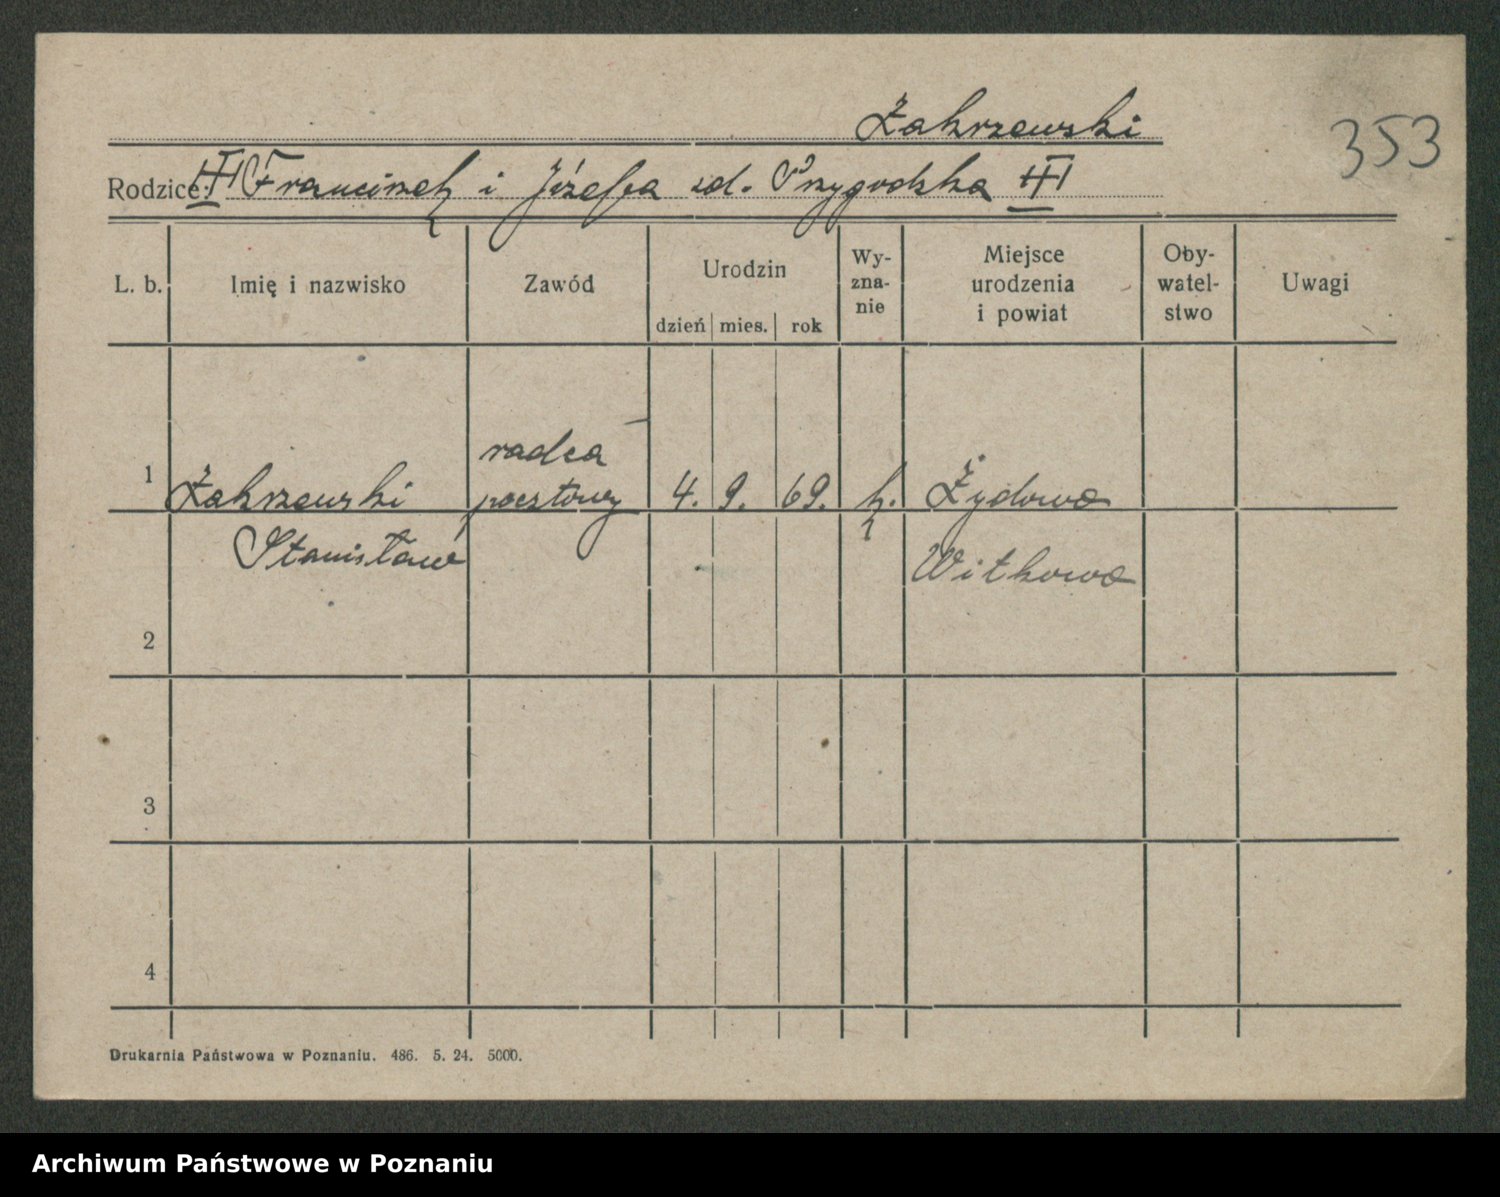 Zakrzewski
353
Rodzice: Franciszek i Józefa zd. Przygodzka
L. b. Imię i nazwisko Zawód Urodzin dzień mies. rok Wy-zna-nie Miejsce urodzenia i powiat Oby-watel-stwo Uwagi
radca
1 Zakrzewski pocztowy 4. 9. 69. k. Żydowo
Stanisław Witkowo
2
3
4
Drukarnia Państwowa w Poznaniu. 486. 5. 24. 5000.
Archiwum Państwowe w Poznaniu